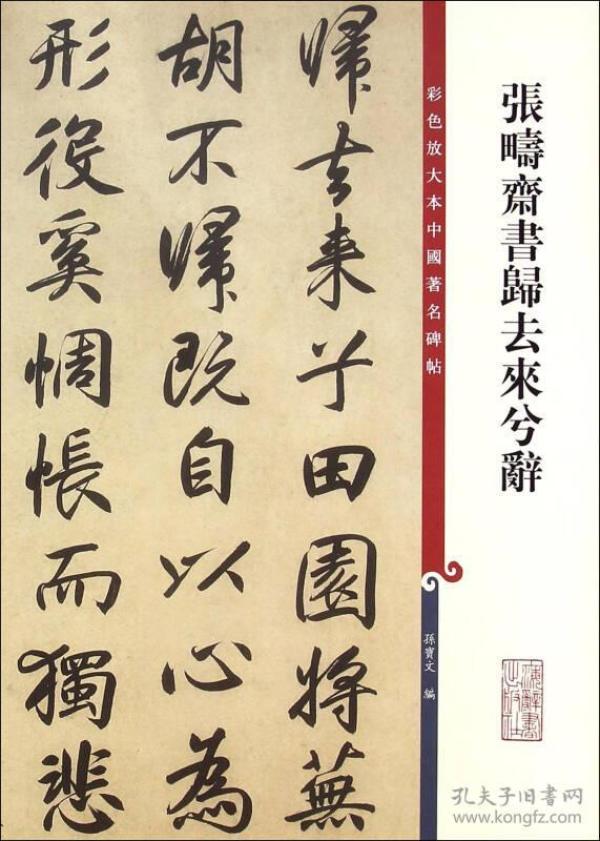 張疇齋書歸去來兮辭
彩色放大本中國著名碑帖
孫寶文 編
歸去来兮田園將蕪
胡不歸既自以心為
形役奚惆悵而獨悲
上海辭書出版社
孔夫子旧书网
www.kongfz.com